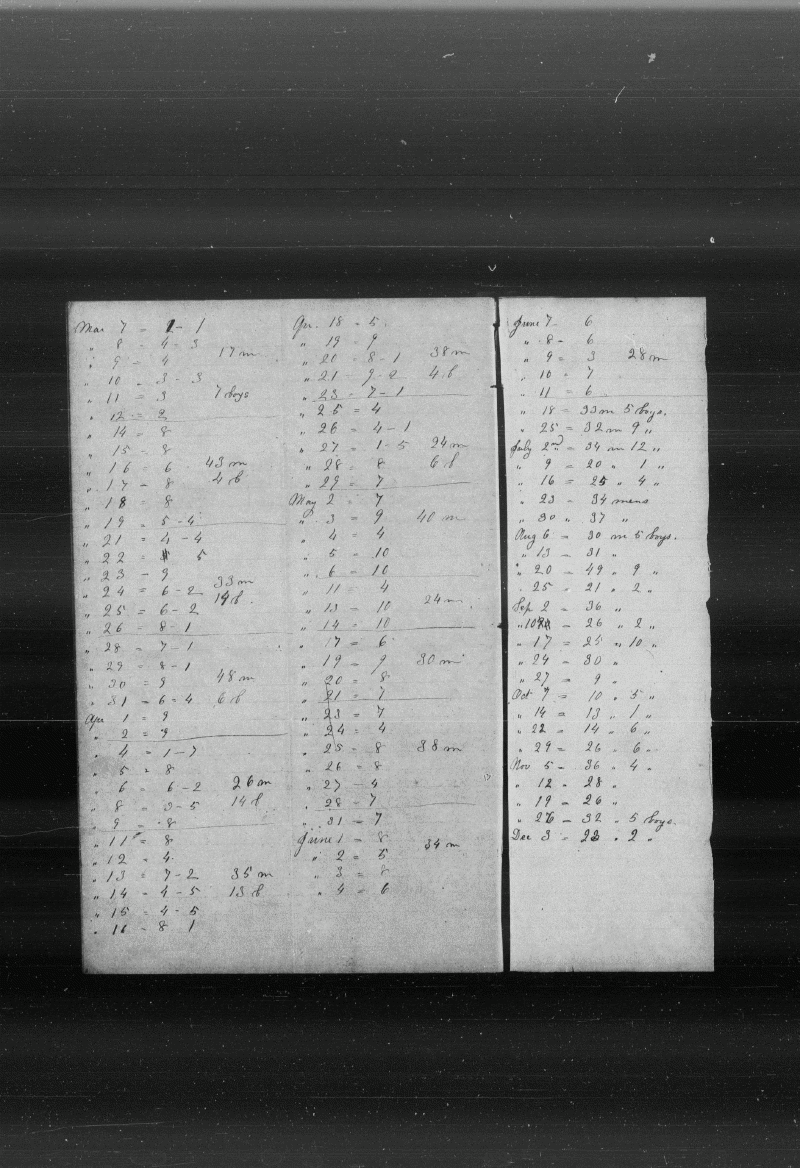 Mar 7 = 1 - 1
" 8 = 4 - 3
17 m
" 9 - 4
" 10 = 3 - 3
" 11 = 3 7 boys
" 12 = 2
" 14 = 8
" 15 = 8
" 16 = 6 43 m
" 17 = 8 4 b
" 18 = 8
" 19 = 5 - 4
" 21 = 4 - 4
" 22 = 5
" 23 - 9
" 24 = 6 - 2 33 m
" 25 = 6 - 2 14 b.
" 26 = 8 - 1
" 28 = 7 - 1
" 29 = 8 - 1
" 30 = 9 48 m
" 31 = 6 = 4 6 b
Apr 1 = 9
" 2 = 9
" 4 = 1 - 7
" 5 = 8
" 6 = 6 - 2 26 m
" 8 = 2 - 5 14 b.
" 9 = 8
" 11 = 8
" 12 = 4
" 13 = 7 - 2 35 m
" 14 = 4 - 5 13 b
" 15 = 4 - 5
" 16 = 8 1
Apr. 18 = 5.
" 19 = 9
" 20 = 8 - 1 38 m
" 21 - 9 - 2 4 b
" 23 = 7 - 1
" 25 = 4
" 26 = 4 - 1
" 27 = 1 - 5 24 m
" 28 = 8 6 b
" 29 = 7
May 2 = 7
" 3 = 9 40 m
" 4 = 4
" 5 = 10
" 6 = 10
" 11 = 4
" 13 = 10 24 m
" 14 = 10
" 17 = 6
" 19 = 9 30 m
" 20 = 8
" 21 = 7
" 23 = 7
" 24 = 4
" 25 = 8 38 m
" 26 = 8
" 27 - 4
" 28 - 7
" 31 = 7
June 1 = 8
34 m
" 2 = 5
" 3 = 8
" 4 = 6
June 7 - 6
" 8 - 6
" 9 = 3 28 m
" 10 = 7
" 11 = 6
" 18 = 33 m 5 boys.
" 25 = 32 m 9 "
July 2nd = 34 m 12 "
" 9 = 20 " 1 "
" 16 = 25 " 4 "
" 23 = 34 mens
" 30 " 37 "
Aug 6 = 30 m 5 boys.
" 13 = 31 "
" 20 = 49 " 9 "
" 25 " 21 " 2 "
Sep 2 = 36 "
" 10th = 26 " 2 "
" 17 = 25 " 10 "
" 24 = 30 "
" 27 = 9 "
Oct 7 = 10 " 5 "
" 14 = 13 " 1 "
" 22 = 14 " 6 "
" 29 = 26 " 6 "
Nov 5 = 36 " 4 "
" 12 = 28 "
" 19 = 26 "
" 26 = 32 " 5 boys.
Dec 3 = 23 " 2 "